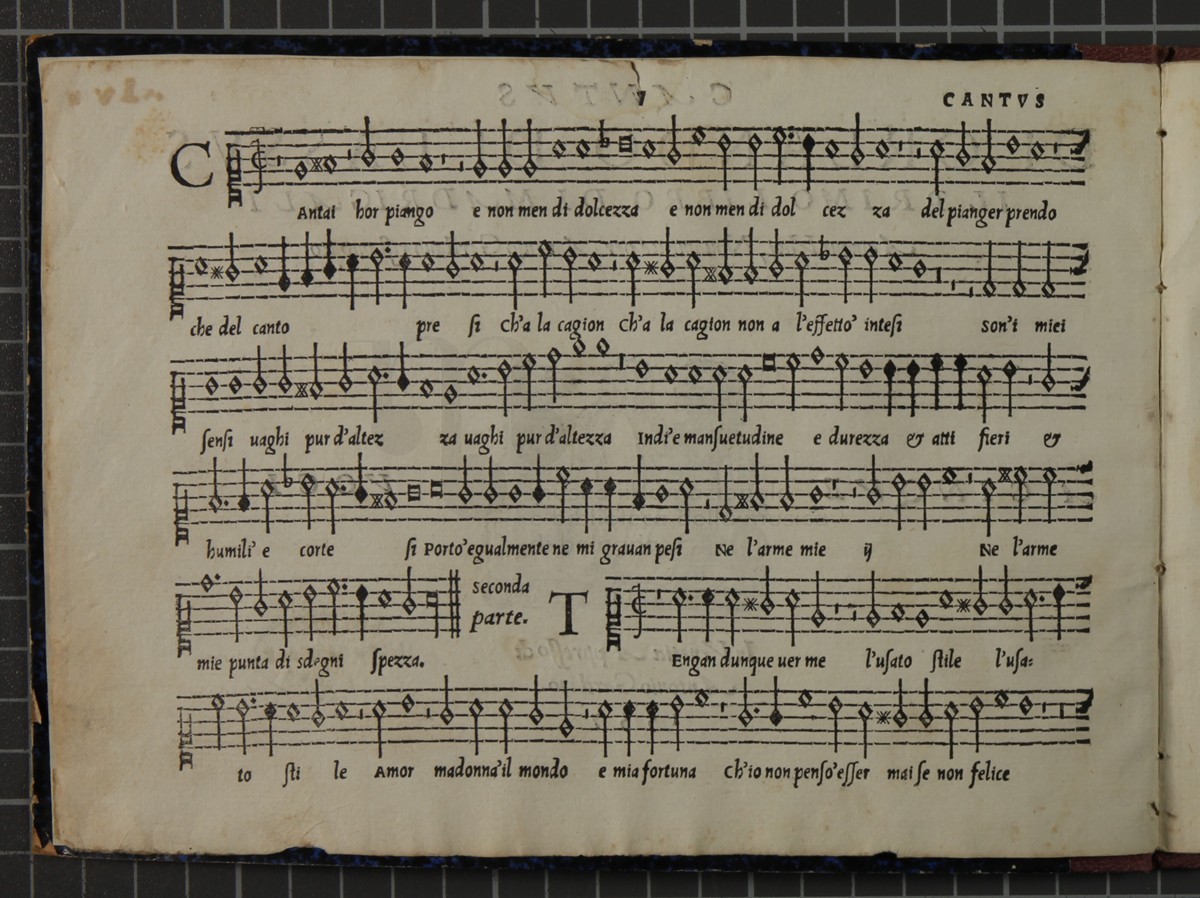 CANTVS
CAntai hor piango e non men di dolcezza e non men di dol cez za del pianger prendo
che del canto pre si Ch'a la cagion Ch'a la cagion non a l'effetto' intesi son'i miei
sensi uaghi pur d'altez za uaghi pur d'altezza Indi'e mansuetudine e durezza & atti fieri &
humili' e corte si Porto'egualmente ne mi grauan pesi Ne l'arme mie ij Ne l'arme
mie punta di sdegni spezza.
seconda
parte.
TEngan dunque uer me l'usato stile l'usa=
to sti le Amor madonna'il mondo e mia fortuna Ch'io non penso'esser mai se non felice